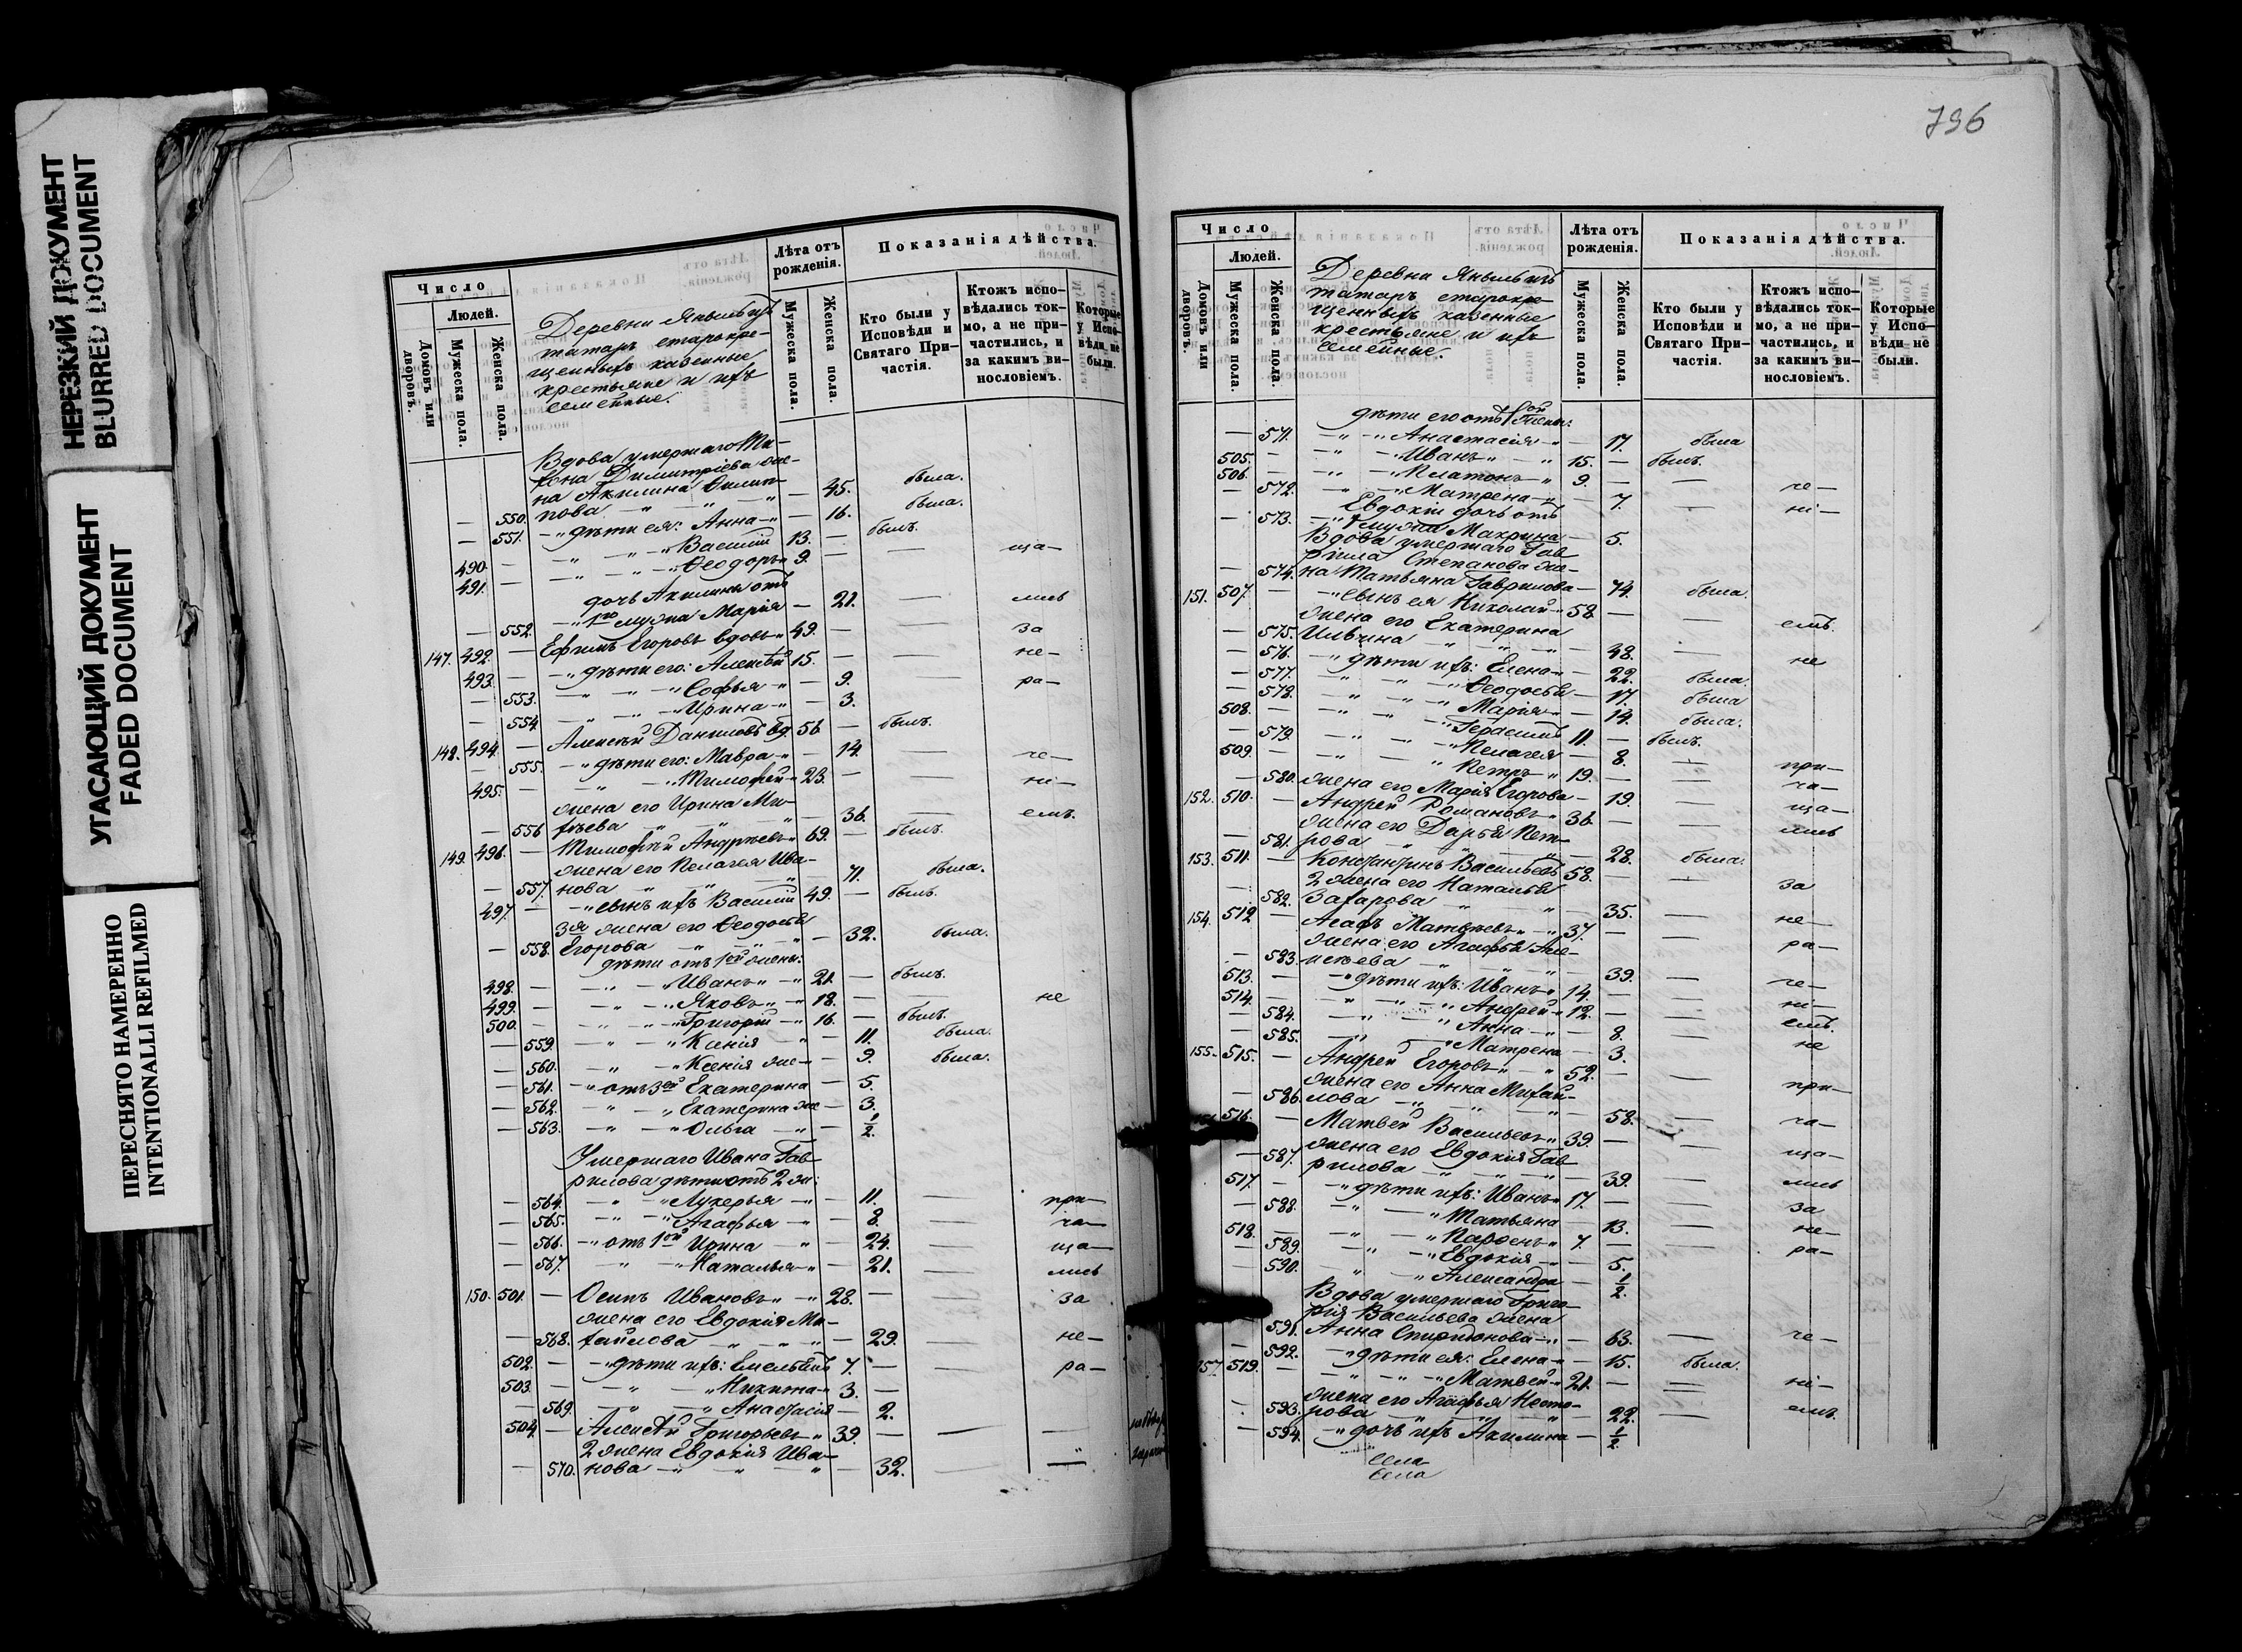 НЕРЕЗКИЙ ДОКУМЕНТ
BLURRED DOCUMENT
УГАСАЮЩИЙ ДОКУМЕНТ
FADED DOCUMENT
ПЕРЕСНЯТО НАМЕРЕННО
INTENTIONALLI REFILMED
Число
Людей.
Домовъ или дворовъ.
Мужеска пола.
Женска пола.
Деревни
татаръ старокре-
щенныхъ казенные
крестьяне и ихъ
семейные.
Лѣта отъ рожденія.
Мужеска пола.
Женска пола.
Показанія дѣйства.
Кто были у Исповѣди и Святаго При-частія.
Ктожъ испо-вѣдались ток-мо, а не при-частились, и за какимъ ви-нословіемъ.
Которые у Испо-вѣди не были.
Вдова умершаго Ти-
хона Димитріева же-
на Акилина Филип-
550. пова — 45. была.
551. дѣти ея: Анна — 16. была.
490. — Василій 13. — былъ.
491. — Ѳеодоръ 9. — — ща—
дочь Акилины отъ
552. 1го мужа Марія — 21. — лись
147. 492. — Ефимъ Егоровъ вдовъ 49. — — за
493. — дѣти его: Алексѣй 15. — — не—
553. Софья — 9. — ра—
554. Ирина — 3.
148. 494. — Алексѣй Даниловъ вд. 56 — былъ.
555. дѣти его: Мавра — 14. — че—
495. — Тимофей 23. — — ні—
жена его Ирина Ми-
556 хѣева — 36. — емъ.
149. 496. — Тимофѣй Андреевъ 69. — былъ.
жена его Пелагея Ива-
557. нова — 71. была.
497. — сынъ ихъ Василій 49. — былъ.
3я жена его Ѳеодосья
558. Егорова — 32. была.
дѣти отъ 1ой жены:
498. — Иванъ 21. — былъ.
499. — Яковъ 18. — — не
500. — Григорій 16. — былъ.
559. Ксенія — 11. была.
560. Ксенія же — 9. была.
561. отъ 3ей Екатерина — 5.
562. Екатерина же — 3.
563. Ольга — 1/2.
Умершаго Ивана Гав-
рилова дѣти отъ 2 ж:
564. Лукерья — 11. при—
565. Агафья — 8. — ча—
566. отъ 1ой Ирина — 24. — ща—
567. Наталья — 21. — лись
150. 501. — Осипъ Ивановъ 28. — — за
жена его Евдокія Ми-
568. хайлова — 29. — не—
502. — дѣти ихъ: Емельянъ 7. — — ра—
503. — Никита 3. —
569. Анастасія — 2.
504. — Алексѣй Григорьевъ 39. — — —
2 жена Евдокія Ива-
570. нова — 32. — —
796
Число
Людей.
Домовъ или дворовъ.
Мужеска пола.
Женска пола.
Деревни
татаръ старокре-
щенныхъ казенные
крестьяне и ихъ
семейные.
Лѣта отъ рожденія.
Мужеска пола.
Женска пола.
Показанія дѣйства.
Кто были у Исповѣди и Святаго При-частія.
Ктожъ испо-вѣдались ток-мо, а не при-частились, и за какимъ ви-нословіемъ.
Которые у Испо-вѣди не были.
дѣти его отъ 1ой жены:
571. Анастасія — 17. была
505. — Иванъ 15. — былъ.
506. — Платонъ 9. — — че—
572. Матрена — 7. — ні—
Евдокіи дочь отъ
573. 1 мужа Макрина — 5.
Вдова умершаго Гав-
рила Степанова же-
574. на Татьяна Гаврилова — 74. была.
151. 507. — сынъ ея Николай 58. — — емъ.
жена его Екатерина
575. Ильина — 48. — не
576. дѣти ихъ: Елена — 22. была.
577. Ѳеодосья — 17. была
578. Марія — 14. была.
508. — Герасимъ 11. — былъ.
579. Пелагея — 8. — при—
509. — Петръ 19. — — ча—
580. жена его Марія Егорова — 19. — ща—
152. 510. — Андрей Романовъ 36. — — лись
жена его Дарья Пет-
581. рова — 28. была.
153. 511. — Константинъ Васильевъ 58. — — за
2 жена его Наталья
582. Захарова — 35. — не—
154. 512 — Агафъ Матвѣевъ 37. — — ра—
жена его Агафья Але-
583. ксѣева — 39. — че—
513. — дѣти ихъ: Иванъ 14. — — ні—
514. — Андрей 12. — — емъ.
584. Анна — 8. — не
585. Матрена — 3.
155. 515. — Андрей Егоровъ 52. — — при—
жена его Анна Михай-
586. лова — 58. — ча—
516. — Матвей Васильевъ 39. — — ща—
жена его Евдокія Гав-
587. рилова — 39. — лись
517. — дѣти ихъ: Иванъ 17. — — за
588. Татьяна — 13. — не—
518. — Парѳенъ 7. — — ра—
589. Евдокія — 5.
590. Александра — 1/2.
Вдова умершаго Григо-
рія Васильева жена
591. Анна Спиридонова — 63. — че—
592. дѣти ея: Елена — 15. была.
157 519. — Матвей 21. — — ні—
жена его Агафья Несто-
593. рова — 22. — емъ.
594. дочь ихъ Акилина — 1/2
Села
Села